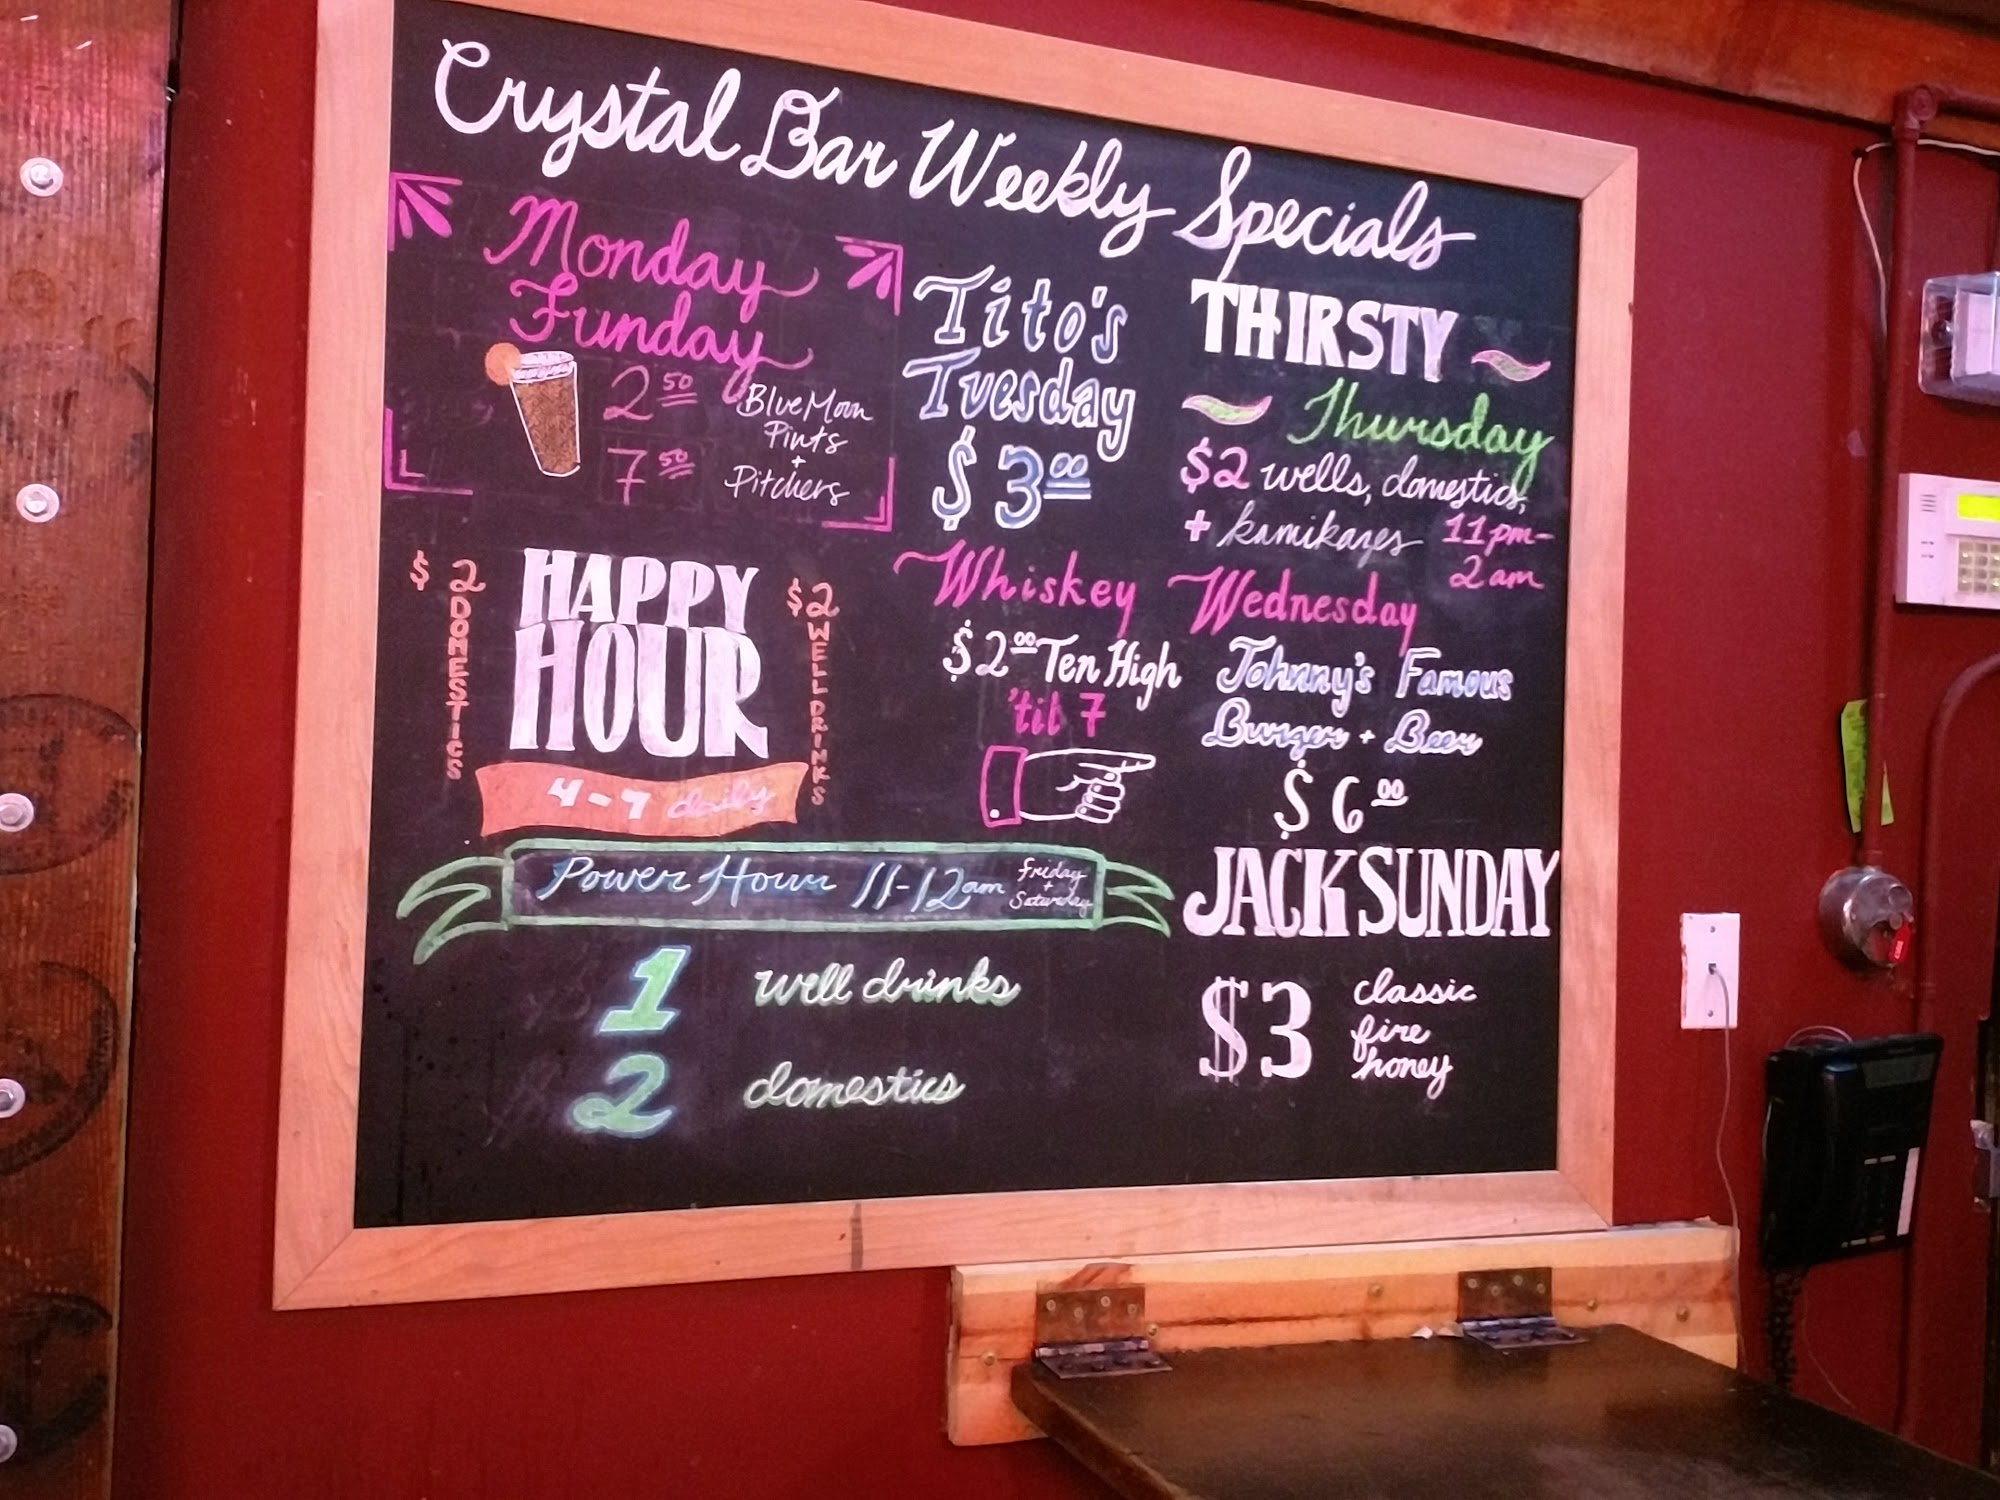 Crystal Bar Weekly Specials
Monday
Funday
2 50 Blue Moon
Pints
+
7 50 Pitchers
Tito's
Tuesday
$3 00
THIRSTY
Thursday
$2 wells, domestics,
+ kamikazes 11pm-
2am
$2 DOMESTICS
HAPPY
HOUR
4-7 daily
$2 WELL DRINKS
Whiskey Wednesday
$2 00 Ten High
'til 7
Johnny's Famous
Burger + Beer
$6 00
Power Hour 11-12am Friday
+
Saturday
1 well drinks
2 domestics
JACK SUNDAY
$3 classic
fire
honey